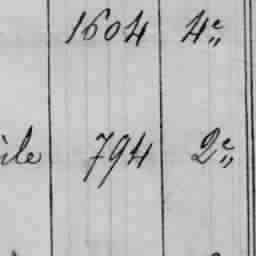 1604 4e„
ile 794 2e„